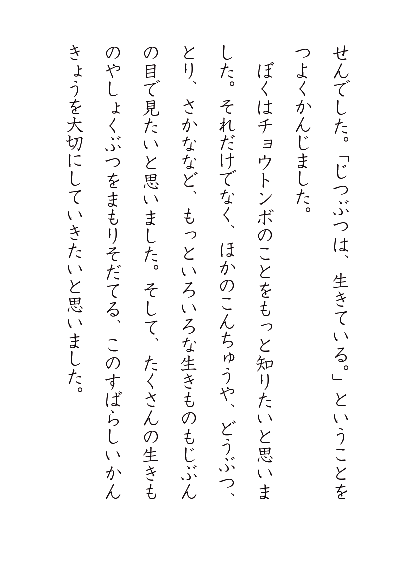 せんでした。「じつぶつは、生きている。」ということを
つよくかんじました。
ぼくはチョウトンボのことをもっと知りたいと思いま
した。それだけでなく、ほかのこんちゅうや、どうぶつ、
とり、さかななど、もっといろいろな生きものもじぶん
の目で見たいと思いました。そして、たくさんの生きも
のやしょくぶつをまもりそだてる、このすばらしいかん
きょうを大切にしていきたいと思いました。